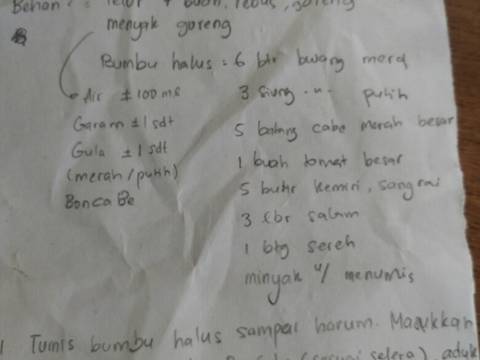 Bahan : telur + buah, rebus, goreng
menyak goreng
Bumbu halus : 6 btr bwang merah
Air ± 100 ml
3 siung -"- putih
Garam ± 1 sdt
5 batang cabe merah besar
Gula ± 1 sdt
1 buah tomat besar
(merah/putih)
5 butir kemiri, sangrai
BonCaBe
3 lbr salam
1 btg sereh
minyak u/ menumis
1 Tumis bumbu halus sampai harum. Masukkan
(sesuai selera), aduk